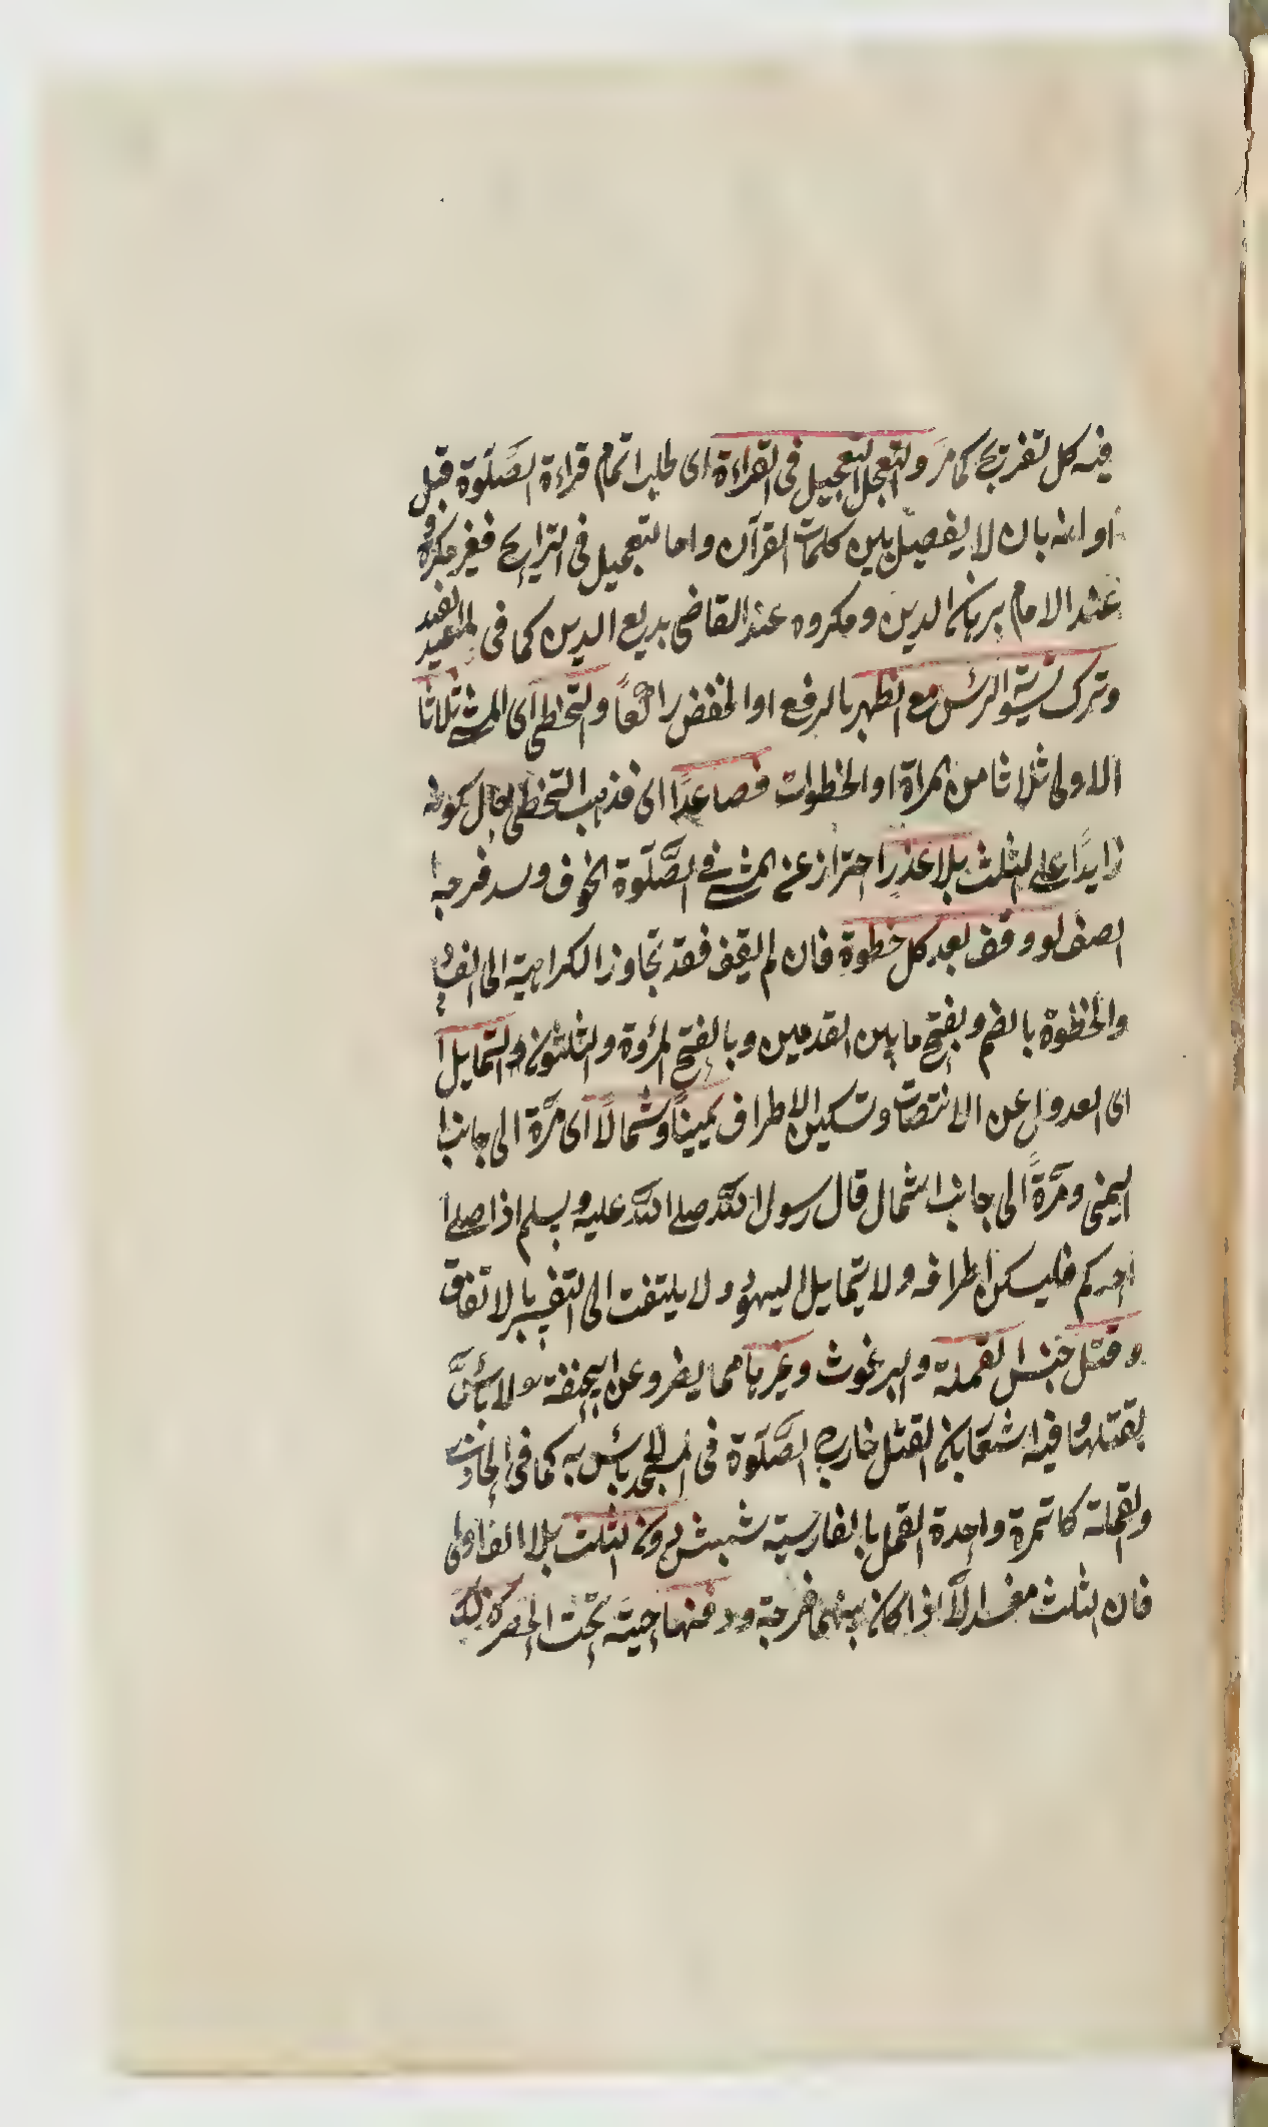 فيه كل تفرج كما مرّ والتعجل التعجيل فى القراءة اى طلب اتمام قراءة الصّلوة قبل
اوانه بان لا يفصل بين كلمات القرآن واما لتعجيل فى التراويح فغير مكروه
عند الامام برهان الدين ومكروه عند القاضى بديع الدين كما فى المفيد
وترك تسوية الرئس مع الظهر بالرفع او الخفض راكعاً والتخطى اى المشى ثلاثا
الاولى ثلاثا من المراة او الخطوات فصاعدًا اى فذهب التخطى بحال كونه
زايدًا على الثلث بلا عذر احتراز عن المشى فى الصّلوة الخوف وسد فرجه
الصف لو وقف بعد كل خطوة فان لم يقف فقد تجاوز الكراهية الى الفساد
والخطوة بالضم وبفتح ما بين القدمين وبالفتح المرّة والتمايل
اى العدول عن الانتصاب وتسكين الاطراف يمينًا وشمالًا اى مرّة الى جانب
اليمنى ومرّةً الى جانب الشمال قال رسول الله صلى الله عليه وسلم اذا صلى
احدكم فليسكن اطرافه ولا يتمايل اليهود ولا يلتفت الى بالاتفاق
وقتل جنس القملة والبرغوث وغيرها مما يضر وعن ابيحنفة ولا بأس
بقتلها وفيه اشعار بان القتل خارج الصّلوة فى المسجد لا بأس به كما فى
والقملة كاتمرة واحدة القمل بالفارسية شبش دون الثلث بلا
فان الثلث مفسد الّا اذا كان بينهما فرجة ودفنها حية تحت الحصر